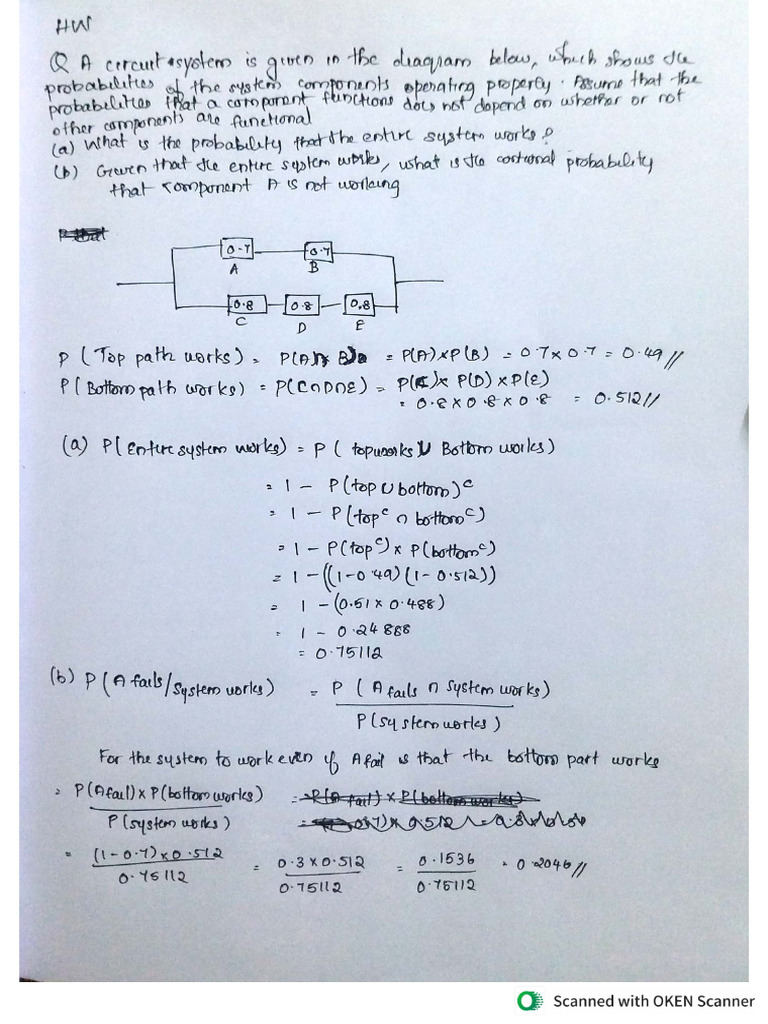 HW
Q A circuit system is given in the diagram below, which shows the
probabilities of the system components operating properly. Assume that the
probabilities that a component functions does not depend on whether or not
other components are functional
(a) What is the probability that the entire system works?
(b) Given that the entire system works, what is the probability
that component A is not working
0.7 0.7
A B
0.8 0.8 0.8
C D E
P (Top path works) = P(A ∩ B) = P(A)×P(B) = 0.7 × 0.7 = 0.49 //
P (Bottom path works) = P(C∩D∩E) = P(C)× P(D) × P(E)
= 0.8 × 0.8 × 0.8 = 0.512 //
(a) P(Entire system works) = P ( top works ∪ Bottom works)
= 1 - P(top ∪ bottom)ᶜ
= 1 - P(topᶜ ∩ bottomᶜ)
= 1 - P(topᶜ) × P(bottomᶜ)
= 1 - ((1-0.49) (1-0.512))
= 1 - (0.51 × 0.488)
= 1 - 0.24888
= 0.75112
(b) P (A fails/system works) = P ( A fails ∩ system works)
P(system works)
For the system to work even if A fail is that the bottom part works
= P(A fail) × P(bottom works) = P(A fail) × P(bottom works)
P(system works)
= (1-0.7) × 0.512 = 0.3 × 0.512 = 0.1536 = 0.2046 //
0.75112 0.75112 0.75112
Scanned with OKEN Scanner